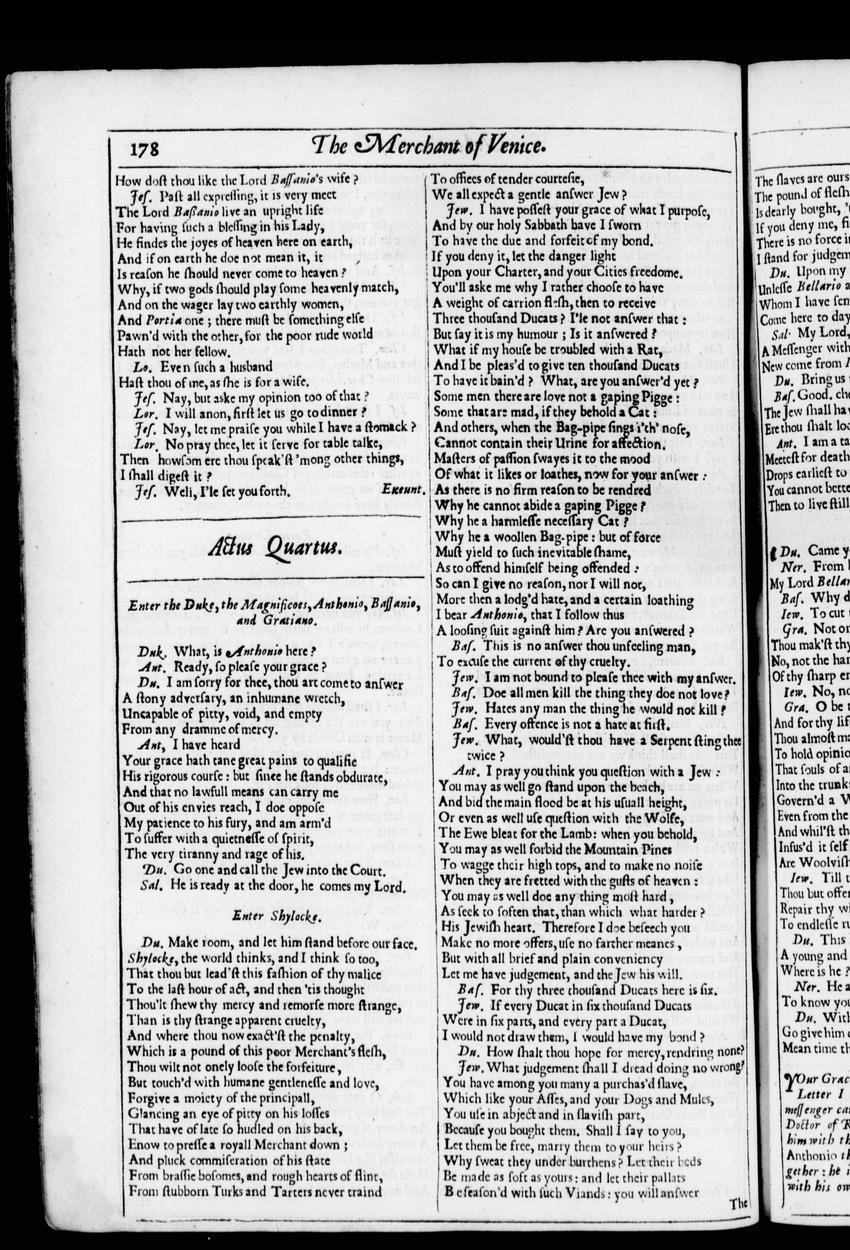 178
The Merchant of Venice.
How dost thou like the Lord Bassanio's wife?
Jes. Past all expressing, it is very meet
The Lord Baſſanio live an upright life
For having ſuch a bleſſing in his Lady,
He findes the joyes of heaven here on earth,
And if on earth he doe not mean it, it
Is reaſon he ſhould never come to heaven?
Why, if two gods ſhould play ſome heavenly match,
And on the wager lay two earthly women,
And Portia one; there muſt be ſomething elſe
Pawn'd with the other, for the poor rude world
Hath not her fellow.
Lo. Even ſuch a husband
Haſt thou of me, as ſhe is for a wife.
Jeſ. Nay, but aske my opinion too of that?
Lor. I will anon, firſt let us go to dinner?
Jeſ. Nay, let me praiſe you while I have a ſtomack?
Lor. No pray thee, let it ſerve for table talke,
Then howſom ere thou ſpeak'ſt 'mong other things,
I ſhall digeſt it?
Jeſ. Well, I'le ſet you forth. Exeunt.
Actus Quartus.
Enter the Duke, the Magnificoes, Anthonio, Baſſanio,
and Gratiano.
Duk. What, is Anthonio here?
Ant. Ready, ſo pleaſe your grace?
Du. I am ſorry for thee, thou art come to anſwer
A ſtony adverſary, an inhumane wretch,
Uncapable of pitty, void, and empty
From any dramme of mercy.
Ant, I have heard
Your grace hath tane great pains to qualifie
His rigorous courſe: but ſince he ſtands obdurate,
And that no lawfull means can carry me
Out of his envies reach, I doe oppoſe
My patience to his fury, and am arm'd
To ſuffer with a quietneſſe of ſpirit,
The very tiranny and rage of his.
Du. Go one and call the Jew into the Court.
Sal. He is ready at the door, he comes my Lord.
Enter Shylocke.
Du. Make room, and let him ſtand before our face.
Shylocke, the world thinks, and I think ſo too,
That thou but lead'ſt this faſhion of thy malice
To the laſt hour of act, and then 'tis thought
Thou'lt ſhew thy mercy and remorſe more ſtrange,
Than is thy ſtrange apparent cruelty,
And where thou now exact'ſt the penalty,
Which is a pound of this poor Merchant's fleſh,
Thou wilt not onely looſe the forfeiture,
But touch'd with humane gentleneſſe and love,
Forgive a moiety of the principall,
Glancing an eye of pitty on his loſſes
That have of late ſo hudled on his back,
Enow to preſſe a royall Merchant down;
And pluck commiſeration of his ſtate
From braſſie boſomes, and rough hearts of flint,
From ſtubborn Turks and Tarters never traind
To offices of tender courteſie,
We all expect a gentle anſwer Jew?
Jew. I have poſſeſt your grace of what I purpoſe,
And by our holy Sabbath have I ſworn
To have the due and forfeit of my bond.
If you deny it, let the danger light
Upon your Charter, and your Cities freedome.
You'll aske me why I rather chooſe to have
A weight of carrion fleſh, then to receive
Three thouſand Ducats? I'le not anſwer that:
But ſay it is my humour; Is it anſwered?
What if my houſe be troubled with a Rat,
And I be pleas'd to give ten thouſand Ducats
To have it bain'd? What, are you anſwer'd yet?
Some men there are love not a gaping Pigge:
Some that are mad, if they behold a Cat:
And others, when the Bag-pipe ſings i'th' noſe,
Cannot contain their Urine for affection.
Maſters of paſſion ſwayes it to the mood
Of what it likes or loathes, now for your anſwer:
As there is no firm reaſon to be rendred
Why he cannot abide a gaping Pigge?
Why he a harmleſſe neceſſary Cat?
Why he a woollen Bag-pipe: but of force
Muſt yield to ſuch inevitable ſhame,
As to offend himſelf being offended:
So can I give no reaſon, nor I will not,
More then a lodg'd hate, and a certain loathing
I bear Anthonio, that I follow thus
A looſing ſuit againſt him? Are you anſwered?
Baſ. This is no anſwer thou unfeeling man,
To excuſe the current of thy cruelty.
Jew. I am not bound to pleaſe thee with my anſwer.
Baſ. Doe all men kill the thing they doe not love?
Jew. Hates any man the thing he would not kill?
Baſ. Every offence is not a hate at firſt.
Jew. What, would'ſt thou have a Serpent ſting thee
twice?
Ant. I pray you think you queſtion with a Jew:
You may as well go ſtand upon the beach,
And bid the main flood be at his uſuall height,
Or even as well uſe queſtion with the Wolfe,
The Ewe bleat for the Lamb: when you behold,
You may as well forbid the Mountain Pines
To wagge their high tops, and to make no noiſe
When they are fretted with the guſts of heaven:
You may as well doe any thing moſt hard,
As ſeek to ſoften that, than which what harder?
His Jewiſh heart. Therefore I doe beſeech you
Make no more offers, uſe no farther meanes,
But with all brief and plain conveniency
Let me have judgement, and the Jew his will.
Baſ. For thy three thouſand Ducats here is ſix.
Jew. If every Ducat in ſix thouſand Ducats
Were in ſix parts, and every part a Ducat,
I would not draw them, I would have my bond?
Du. How ſhalt thou hope for mercy, rendring none?
Jew. What judgement ſhall I dread doing no wrong?
You have among you many a purchas'd ſlave,
Which like your Aſſes, and your Dogs and Mules,
You uſe in abject and in ſlaviſh part,
Becauſe you bought them. Shall I ſay to you,
Let them be free, marry them to your heirs?
Why ſweat they under burthens? Let their beds
Be made as ſoft as yours: and let their pallats
Be ſeaſon'd with ſuch Viands: you will anſwer
The
The ſlaves are ours
The pound of fleſh
Is dearly bought,
If you deny me,
There is no force
I ſtand for
Du. Upon my
Unleſſe Bellario
Whom I have
Come here to day
Sal. My Lord,
A Meſſenger with
New come from
Du. Bring us
Baſ. Good.
The Jew ſhall
Ere thou ſhalt
Ant. I am a
Meeteſt for death
Drops earlieſt to
You cannot
Then to live ſtill
Du. Came
Ner. From
My Lord
Baſ. Why
Iew. To cut
Gra. Not
Thou mak'ſt thy
No, not the
Of thy ſharp
Iew. No,
Gra. O be
And for thy
Thou almoſt
To hold
That ſouls of
Into the
Govern'd a
Even from the
And whil'ſt
Infus'd it ſelf
Are
Iew. Till
Thou but
Repair thy
To endleſſe
Du. This
A young and
Where is he?
Ner. He
To know
Du. With
Go give him
Mean time
YOur
Letter I
meſſenger
Doctor of
him with
Anthonio
gether: he
with his